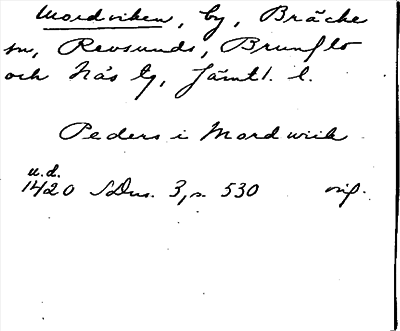 Mordviken, by, Bräcke
sn, Revsunds, Brunflo
och Näs tg, Jämtl. l.
Peders i Mordwiik
u.d.
1420 SDns. 3, s. 530 orig.